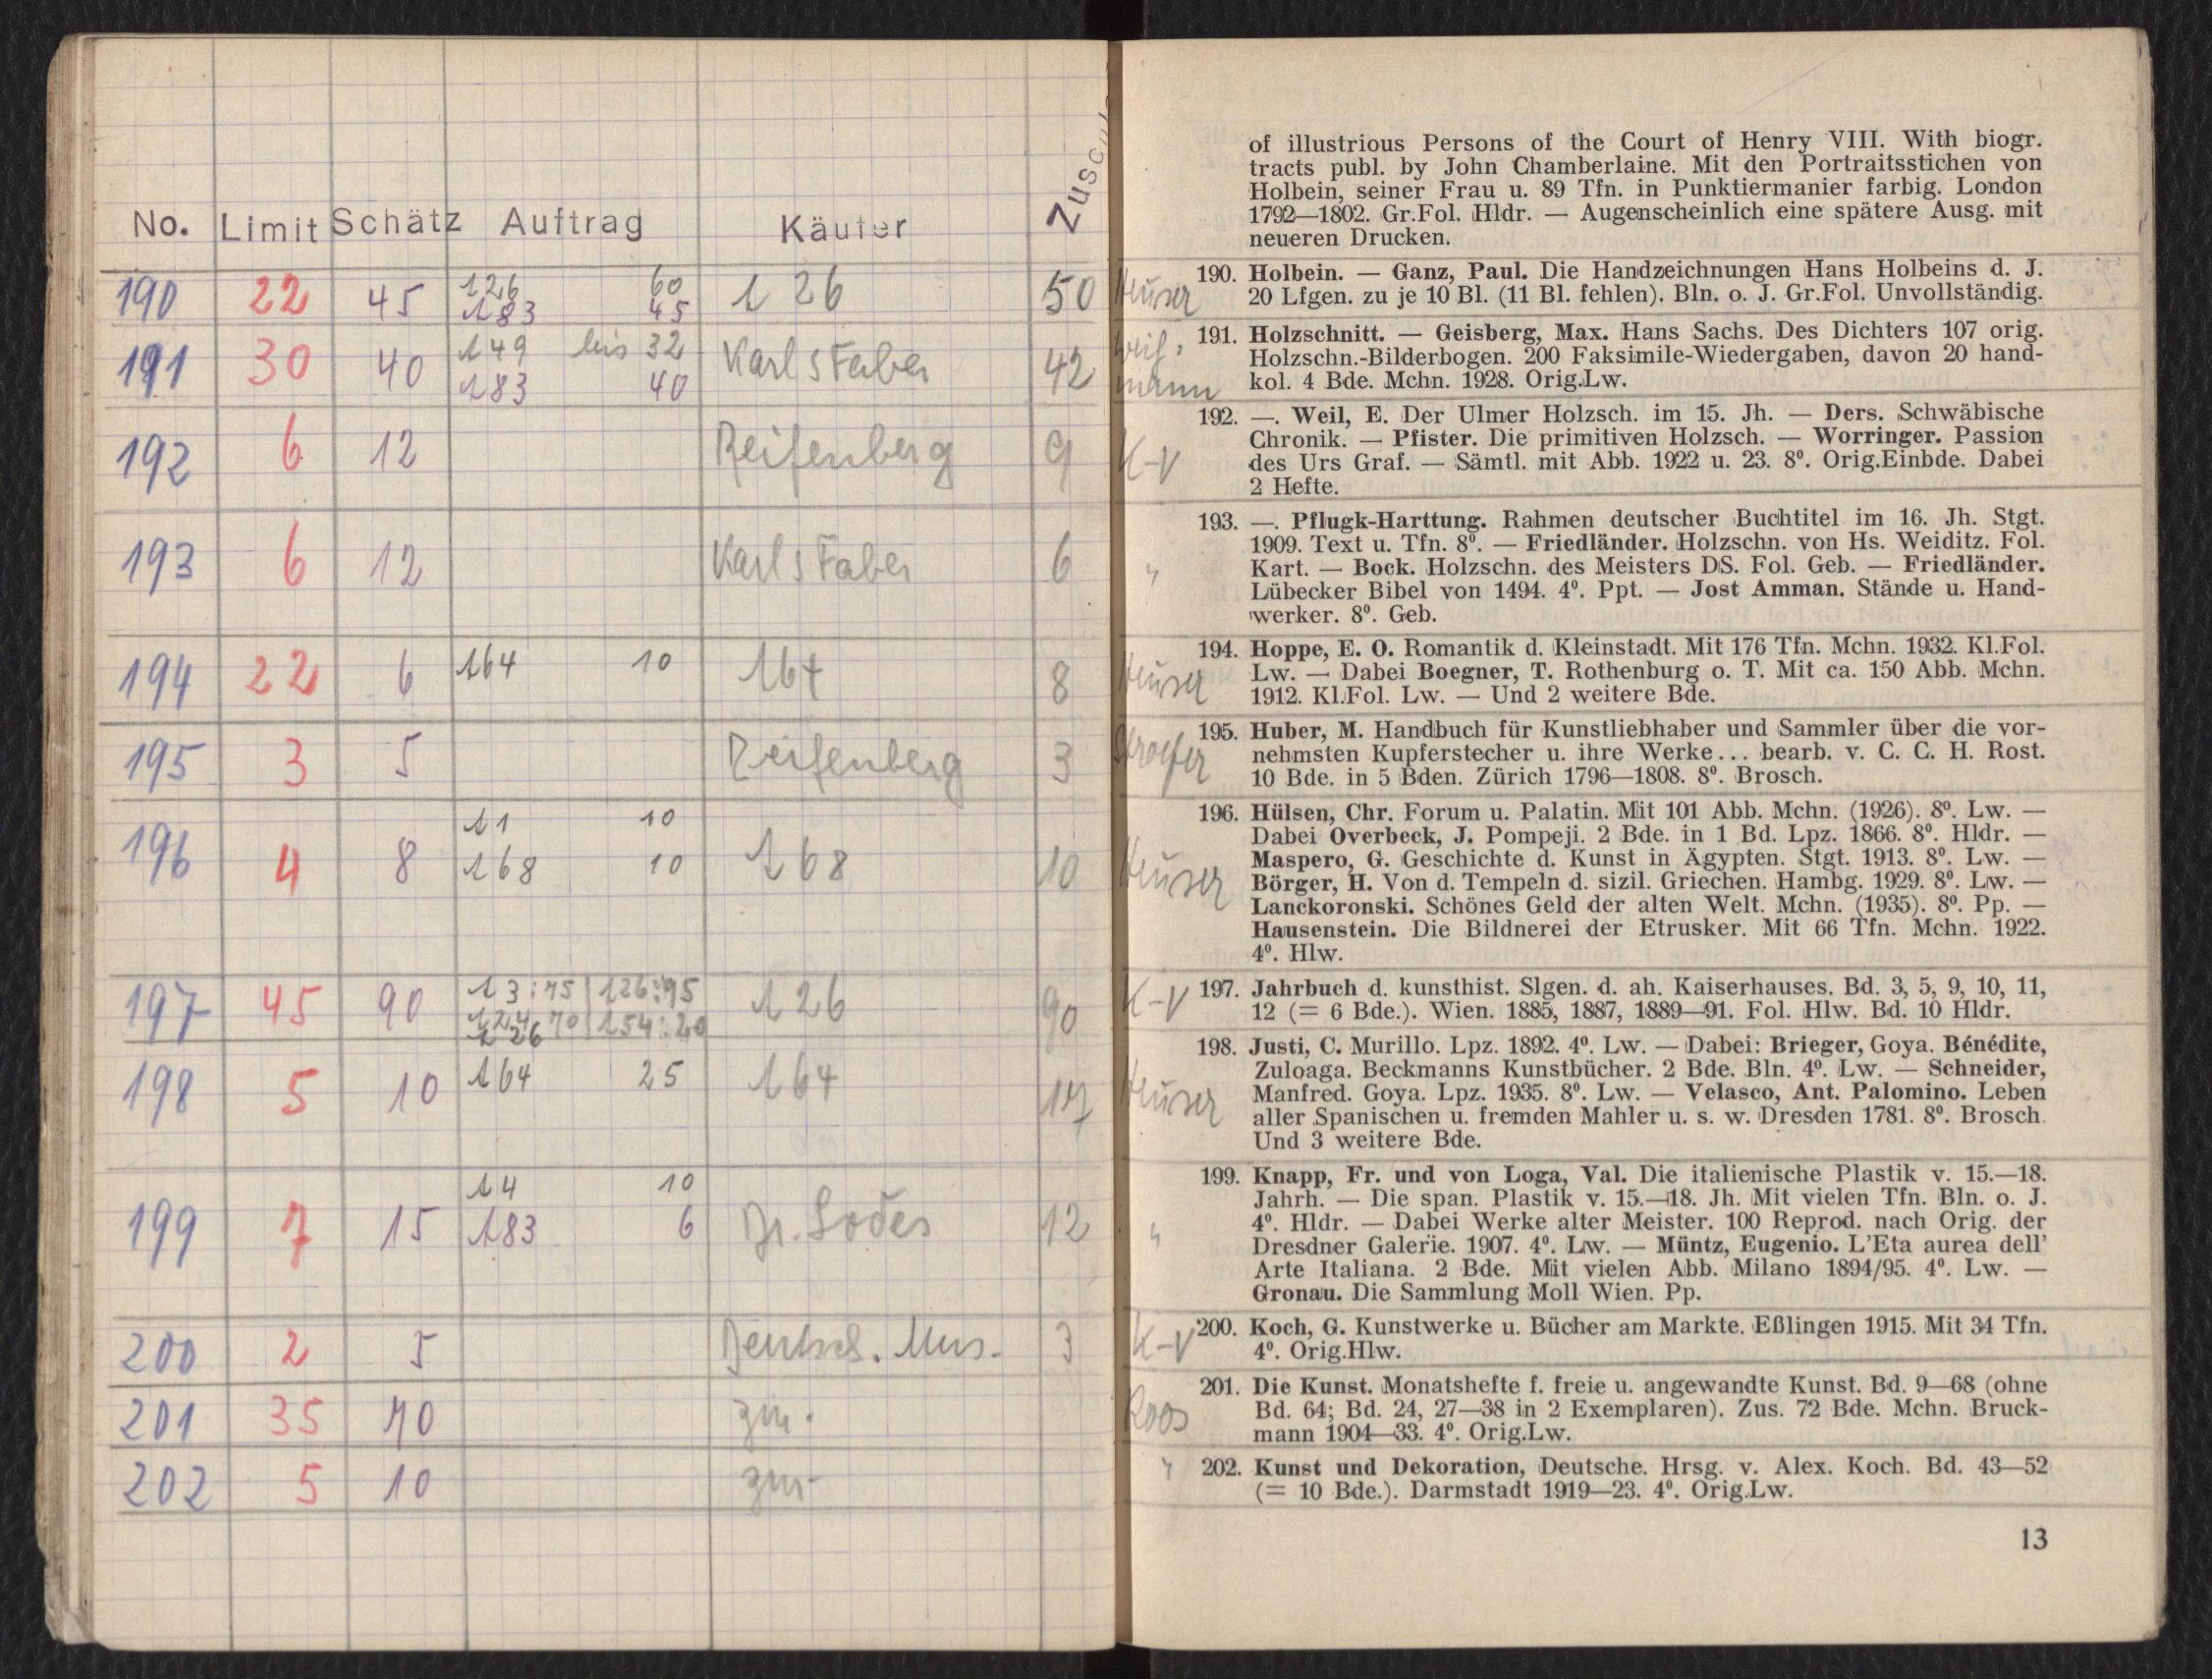 No. Limit Schätz Auftrag Käufer
190 22 45 126 60 126 50 Heuser
183 45
191 30 40 149 bis 32 Karl & Faber 42
183 40
192 6 12 Reifenberg 9 K-V
193 6 12 Karl & Faber 6 "
194 22 6 164 10 164 8 Heuser
195 3 5 Reifenberg 3
196 4 8 11 10 168 10 Heuser
168 10
197 45 90 13:75 126:95 126 90 K-V
124 70 154:20
126
198 5 10 164 25 164 17 Heuser
199 7 15 14 10 Dr. 12 "
183 6
200 2 5 Deutsch. Mus. 3 K-V
201 35 70 zur. Roos
202 5 10 zur "
of illustrious Persons of the Court of Henry VIII. With biogr.
tracts publ. by John Chamberlaine. Mit den Portraitsstichen von
Holbein, seiner Frau u. 89 Tfn. in Punktiermanier farbig. London
1792—1802. Gr.Fol. Hldr. — Augenscheinlich eine spätere Ausg. mit
neueren Drucken.
190. Holbein. — Ganz, Paul. Die Handzeichnungen Hans Holbeins d. J.
20 Lfgen. zu je 10 Bl. (11 Bl. fehlen). Bln. o. J. Gr.Fol. Unvollständig.
191. Holzschnitt. — Geisberg, Max. Hans Sachs. Des Dichters 107 orig.
Holzschn.-Bilderbogen. 200 Faksimile-Wiedergaben, davon 20 hand-
kol. 4 Bde. Mchn. 1928. Orig.Lw.
192. —. Weil, E. Der Ulmer Holzsch. im 15. Jh. — Ders. Schwäbische
Chronik. — Pfister. Die primitiven Holzsch. — Worringer. Passion
des Urs Graf. — Sämtl. mit Abb. 1922 u. 23. 8⁰. Orig.Einbde. Dabei
2 Hefte.
193. —. Pflugk-Harttung. Rahmen deutscher Buchtitel im 16. Jh. Stgt.
1909. Text u. Tfn. 8⁰. — Friedländer. Holzschn. von Hs. Weiditz. Fol.
Kart. — Bock. Holzschn. des Meisters DS. Fol. Geb. — Friedländer.
Lübecker Bibel von 1494. 4⁰. Ppt. — Jost Amman. Stände u. Hand-
werker. 8⁰. Geb.
194. Hoppe, E. O. Romantik d. Kleinstadt. Mit 176 Tfn. Mchn. 1932. Kl.Fol.
Lw. — Dabei Boegner, T. Rothenburg o. T. Mit ca. 150 Abb. Mchn.
1912. Kl.Fol. Lw. — Und 2 weitere Bde.
195. Huber, M. Handbuch für Kunstliebhaber und Sammler über die vor-
nehmsten Kupferstecher u. ihre Werke... bearb. v. C. C. H. Rost.
10 Bde. in 5 Bden. Zürich 1796—1808. 8⁰. Brosch.
196. Hülsen, Chr. Forum u. Palatin. Mit 101 Abb. Mchn. (1926). 8⁰. Lw. —
Dabei Overbeck, J. Pompeji. 2 Bde. in 1 Bd. Lpz. 1866. 8⁰. Hldr. —
Maspero, G. Geschichte d. Kunst in Ägypten. Stgt. 1913. 8⁰. Lw. —
Börger, H. Von d. Tempeln d. sizil. Griechen. Hambg. 1929. 8⁰. Lw. —
Lanckoronski. Schönes Geld der alten Welt. Mchn. (1935). 8⁰. Pp. —
Hausenstein. Die Bildnerei der Etrusker. Mit 66 Tfn. Mchn. 1922.
4⁰. Hlw.
197. Jahrbuch d. kunsthist. Slgen. d. ah. Kaiserhauses. Bd. 3, 5, 9, 10, 11,
12 (= 6 Bde.). Wien. 1885, 1887, 1889—91. Fol. Hlw. Bd. 10 Hldr.
198. Justi, C. Murillo. Lpz. 1892. 4⁰. Lw. — Dabei: Brieger, Goya. Bénédite,
Zuloaga. Beckmanns Kunstbücher. 2 Bde. Bln. 4⁰. Lw. — Schneider,
Manfred. Goya. Lpz. 1935. 8⁰. Lw. — Velasco, Ant. Palomino. Leben
aller Spanischen u. fremden Mahler u. s. w. Dresden 1781. 8⁰. Brosch.
Und 3 weitere Bde.
199. Knapp, Fr. und von Loga, Val. Die italienische Plastik v. 15.—18.
Jahrh. — Die span. Plastik v. 15.—18. Jh. Mit vielen Tfn. Bln. o. J.
4⁰. Hldr. — Dabei Werke alter Meister. 100 Reprod. nach Orig. der
Dresdner Galerie. 1907. 4⁰. Lw. — Müntz, Eugenio. L'Eta aurea dell'
Arte Italiana. 2 Bde. Mit vielen Abb. Milano 1894/95. 4⁰. Lw. —
Gronau. Die Sammlung Moll Wien. Pp.
200. Koch, G. Kunstwerke u. Bücher am Markte. Eßlingen 1915. Mit 34 Tfn.
4⁰. Orig.Hlw.
201. Die Kunst. Monatshefte f. freie u. angewandte Kunst. Bd. 9—68 (ohne
Bd. 64; Bd. 24, 27—38 in 2 Exemplaren). Zus. 72 Bde. Mchn. Bruck-
mann 1904—33. 4⁰. Orig.Lw.
202. Kunst und Dekoration, Deutsche. Hrsg. v. Alex. Koch. Bd. 43—52
(= 10 Bde.). Darmstadt 1919—23. 4⁰. Orig.Lw.
13